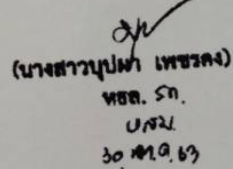 (นางสาวบุปผา เพชรคง)
หธล. รก.
บสบ.
30 ต.ค. 63